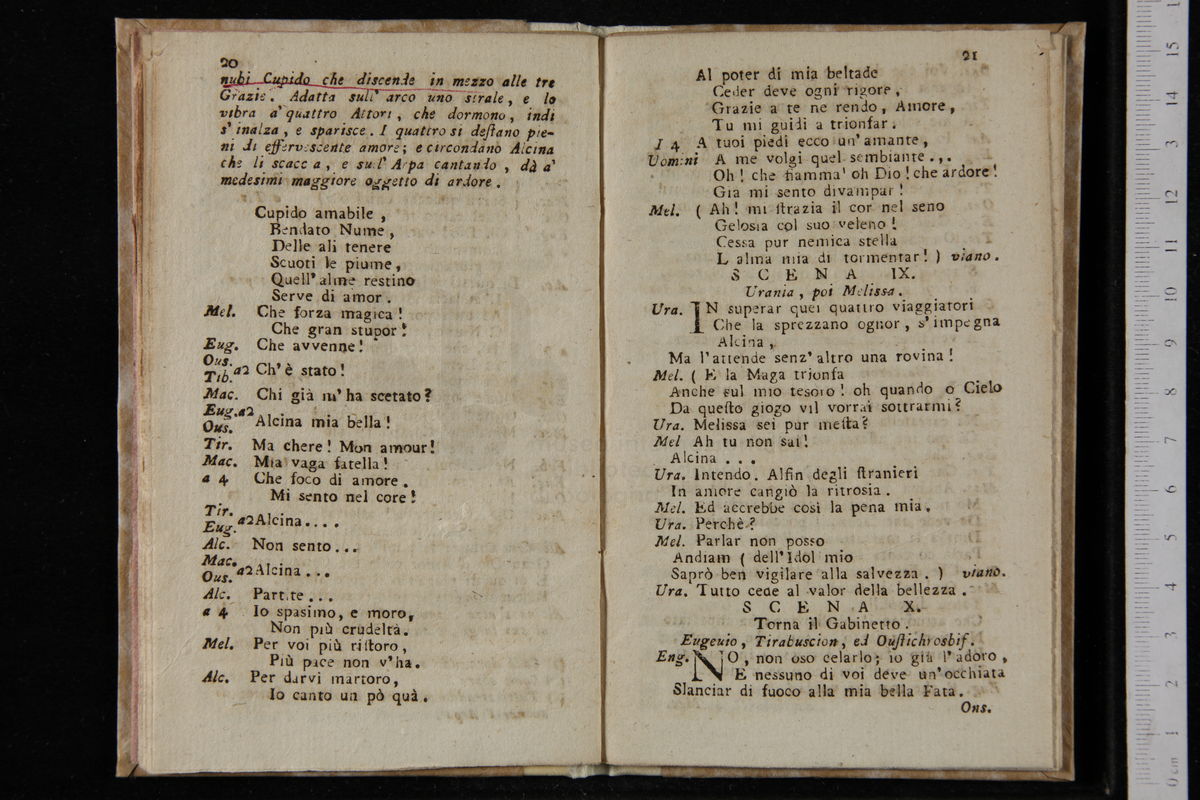 20
nubi Cupido che discende in mezzo alle tre
Grazie. Adatta sull' arco uno strale, e lo
vibra a' quattro Attori, che dormono, indi
s' inalza, e sparisce. I quattro si deſtano pie-
ni di effervescente amore; e circondano Alcina
che li scaccia, e sull' Arpa cantando, dà a'
medesimi maggiore oggetto di ardore.
Cupido amabile,
Bendato Nume,
Delle ali tenere
Scuoti le piume,
Quell' alme restino
Serve di amor.
Mel. Che forza magica!
Che gran stupor!
Eug. Che avvenne!
Ous.
Tib. a2 Ch' è stato!
Mac. Chi già m' ha scetato?
Eug. a2
Ous. Alcina mia bella!
Tir. Ma chere! Mon amour!
Mac. Mia vaga fatella!
a 4 Che foco di amore.
Mi sento nel core!
Tir.
Eug. a2 Alcina....
Alc. Non sento...
Mac.
Ous. a2 Alcina...
Alc. Partite...
a 4 Io spasimo, e moro,
Non più crudeltà.
Mel. Per voi più riſtoro,
Più pace non v' ha.
Alc. Per darvi martoro,
Io canto un pò quà.
21
Al poter di mia beltade
Ceder deve ogni rigore,
Grazie a te ne rendo, Amore,
Tu mi guidi a trionfar.
I 4 A tuoi piedi ecco un' amante,
Uomini A me volgi quel sembiante...
Oh! che fiamma! oh Dio! che ardore!
Gia mi sento divampar!
Mel. ( Ah! mi ſtrazia il cor nel seno
Gelosia col suo veleno!
Cessa pur nemica stella
L alma mia di tormentar! ) viano.
S C E N A IX.
Urania, poi Melissa.
Ura. IN superar quei quattro viaggiatori
Che la sprezzano ognor, s' impegna
Alcina,
Ma l' attende senz' altro una rovina!
Mel. ( E la Maga trionfa
Anche sul mio tesoro! oh quando o Cielo
Da queſto giogo vil vorrai sottrarmi?
Ura. Melissa sei pur meſta?
Mel Ah tu non sai!
Alcina...
Ura. Intendo. Alfin degli ſtranieri
In amore cangiò la ritrosia.
Mel. Ed accrebbe così la pena mia.
Ura. Perchè?
Mel. Parlar non posso
Andiam ( dell' Idol mio
Saprò ben vigilare alla salvezza. ) viano.
Ura. Tutto cede al valor della bellezza.
S C E N A X.
Torna il Gabinetto.
Eugenio, Tirabuscion, ed Ouſtichrosbif.
Eng. NO, non oso celarlo; io già l' adoro,
E nessuno di voi deve un' occhiata
Slanciar di fuoco alla mia bella Fata.
Ons.